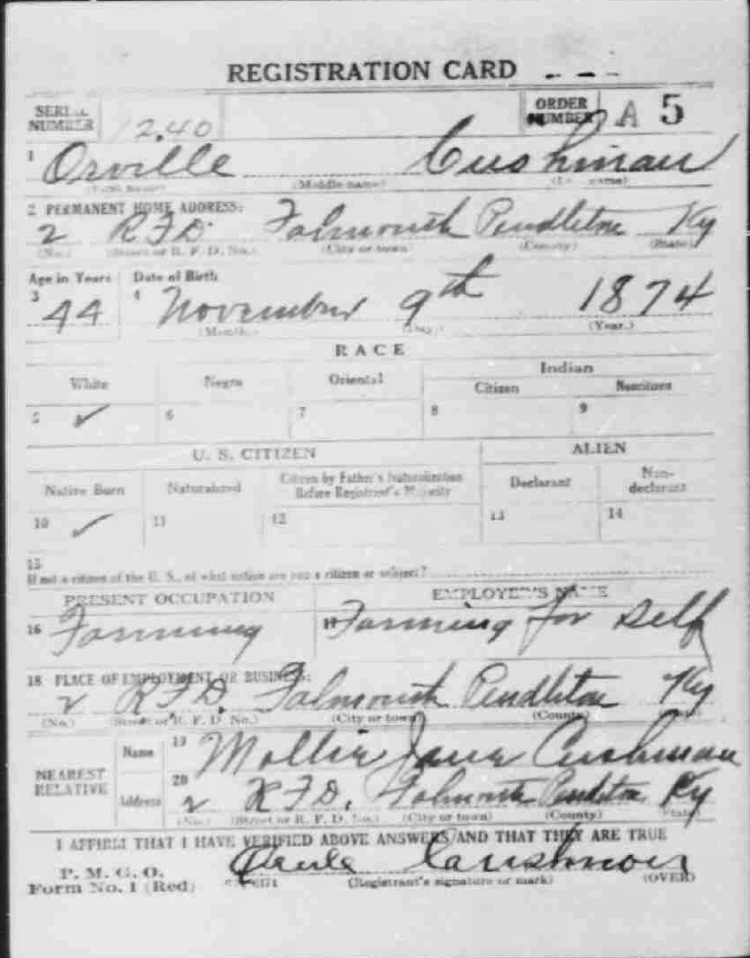 REGISTRATION CARD
SERIAL NUMBER 1240 ORDER NUMBER A 5
1 Orville Cushman
(Middle name)
2 PERMANENT HOME ADDRESS:
2 RFD. Falmouth Pendleton Ky
(No.) (Street or R. F. D. No.) (City or town) (County) (State)
Age in Years Date of Birth
3 44 4 November 9th 1874
(Month.) (Day.) (Year.)
RACE
White Negro Oriental Indian
Citizen Noncitizen
5 ✓ 6 7 8 9
U. S. CITIZEN ALIEN
Native Born Naturalized Citizen by Father's Naturalization Before Registrant's Majority Declarant Non-declarant
10 ✓ 11 12 13 14
15
If not a citizen of the U. S., of what nation are you a citizen or subject?
PRESENT OCCUPATION EMPLOYER'S NAME
16 Farming 17 Farming for Self
18 PLACE OF EMPLOYMENT OR BUSINESS:
2 RFD. Falmouth Pendleton Ky
(No.) (Street or R. F. D. No.) (City or town) (County)
NEAREST RELATIVE Name 19 Mollie Jane Cushman
Address 20 2 RFD. Falmouth Pendleton Ky
(No.) (Street or R. F. D. No.) (City or town) (County) (State)
I AFFIRM THAT I HAVE VERIFIED ABOVE ANSWERS AND THAT THEY ARE TRUE
P. M. G. O.
Form No. 1 (Red) (Registrant's signature or mark) (OVER)